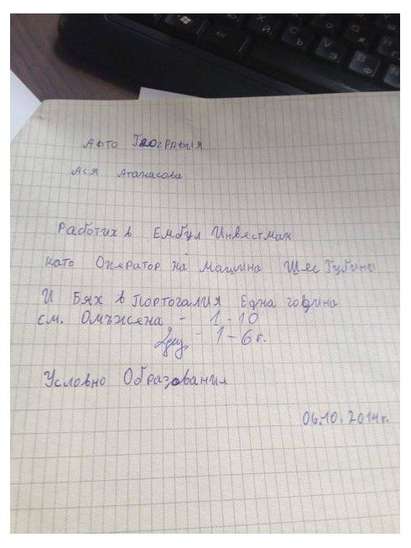 Афто Геограпыя
Ася Атанасова
Работих в Ембул Инвестман
като Оператор на машина Шес Губини
И Бях в Портогалия Една година
см. Омъжена - 1-10
- 1-6 г.
Условно Образования
06.10.2014г.